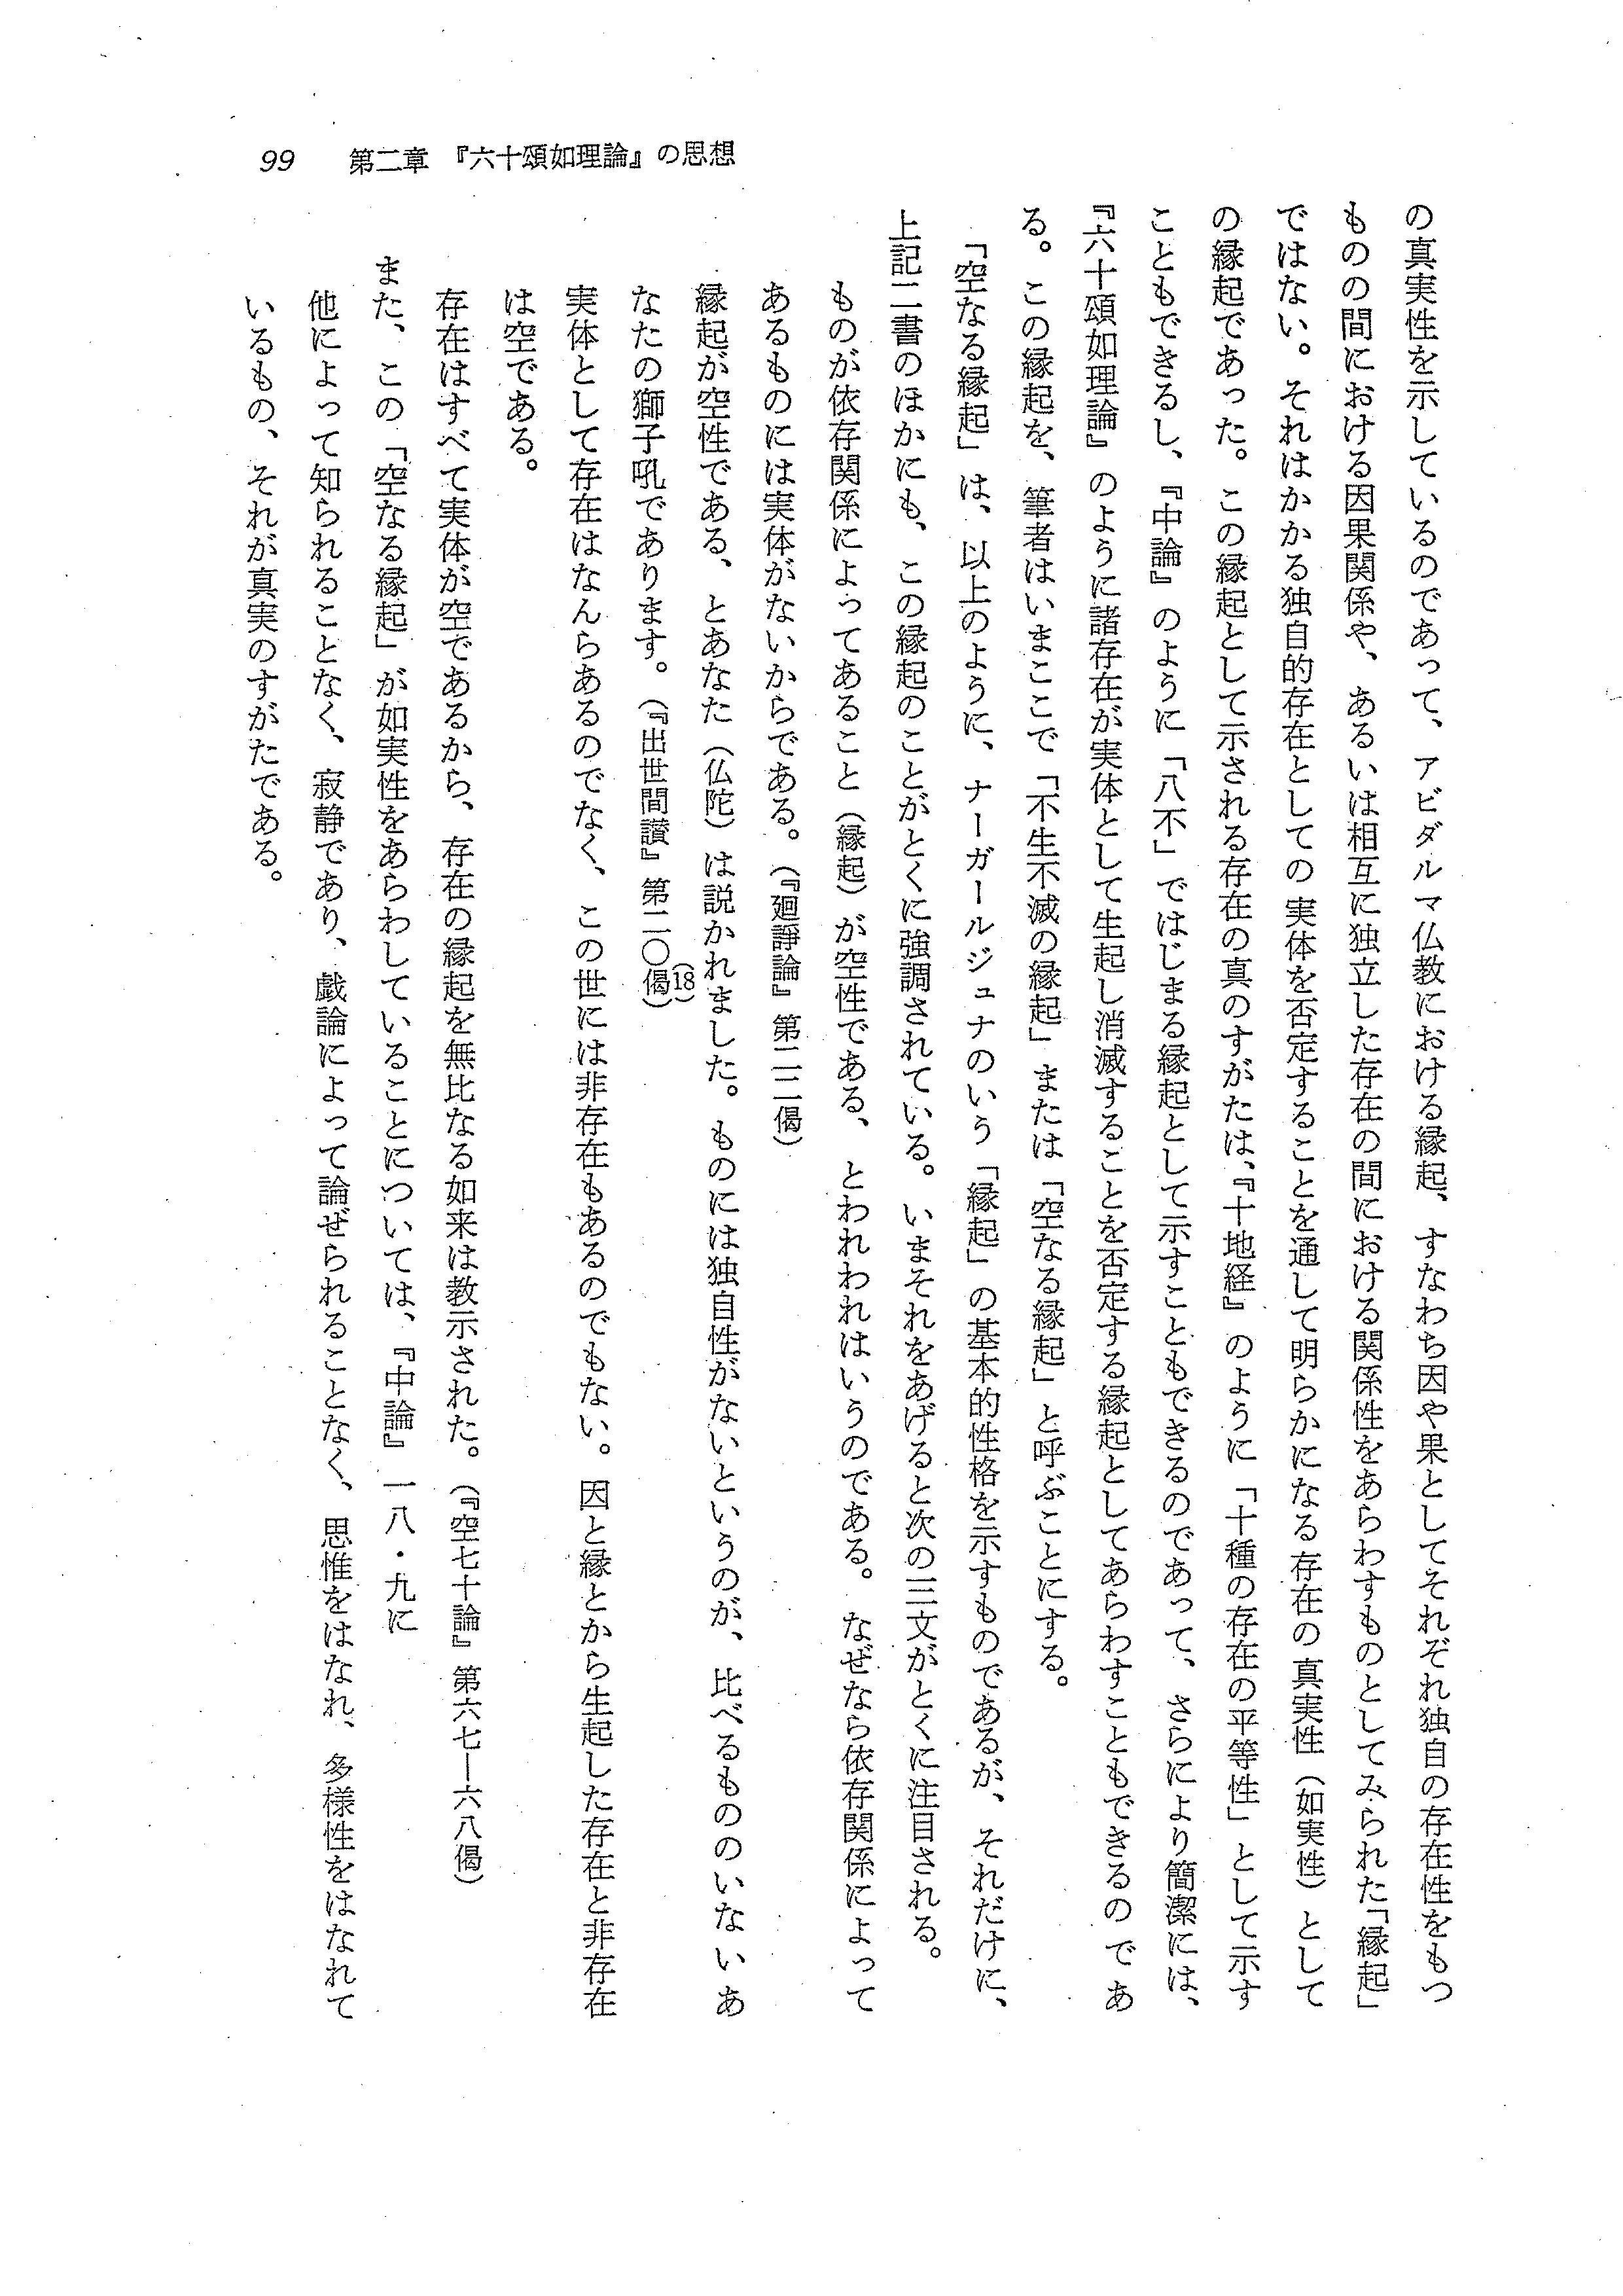 99　第二章　『六十頌如理論』の思想
の真実性を示しているのであって、アビダルマ仏教における縁起、すなわち因や果としてそれぞれ独自の存在性をもつ
ものの間における因果関係や、あるいは相互に独立した存在の間における関係性をあらわすものとしてみられた「縁起」
ではない。それはかかる独自的存在としての実体を否定することを通して明らかになる存在の真実性（如実性）として
の縁起であった。この縁起として示される存在の真のすがたは、『十地経』のように「十種の存在の平等性」として示す
こともできるし、『中論』のように「八不」ではじまる縁起として示すこともできるのであって、さらにより簡潔には、
『六十頌如理論』のように諸存在が実体として生起し消滅することを否定する縁起としてあらわすこともできるのであ
る。この縁起を、筆者はいまここで「不生不滅の縁起」または「空なる縁起」と呼ぶことにする。
「空なる縁起」は、以上のように、ナーガールジュナのいう「縁起」の基本的性格を示すものであるが、それだけに、
上記二書のほかにも、この縁起のことがとくに強調されている。いまそれをあげると次の三文がとくに注目される。
ものが依存関係によってあること（縁起）が空性である、とわれわれはいうのである。なぜなら依存関係によって
あるものには実体がないからである。（『廻諍論』第二二偈）
縁起が空性である、とあなた（仏陀）は説かれました。ものには独自性がないというのが、比べるもののいないあ
なたの獅子吼であります。（『出世間讃』第二〇偈）(18)
実体として存在はなんらあるのでなく、この世には非存在もあるのでもない。因と縁とから生起した存在と非存在
は空である。
存在はすべて実体が空であるから、存在の縁起を無比なる如来は教示された。（『空七十論』第六七―六八偈）
また、この「空なる縁起」が如実性をあらわしていることについては、『中論』一八・九に
他によって知られることなく、寂静であり、戯論によって論ぜられることなく、思惟をはなれ、多様性をはなれて
いるもの、それが真実のすがたである。